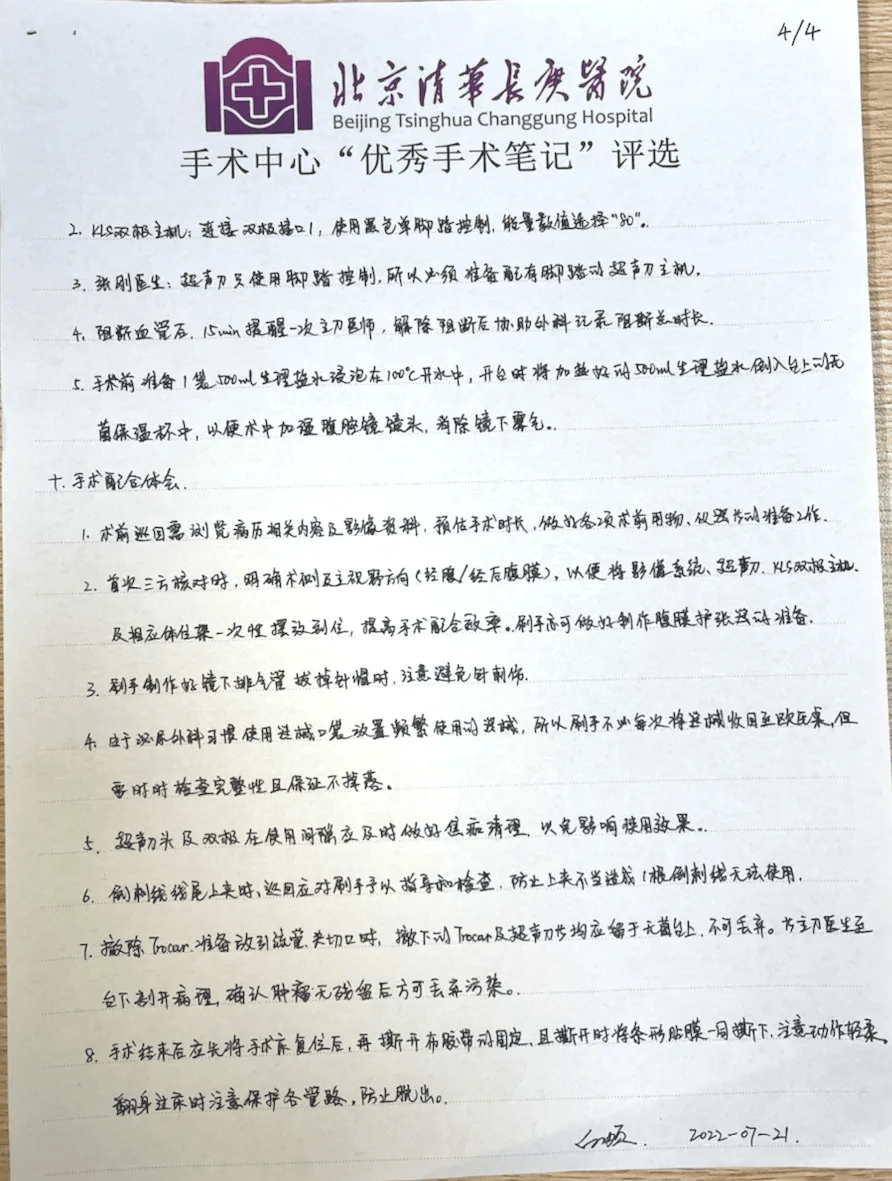 4/4
北京清華長庚醫院
Beijing Tsinghua Changgung Hospital
手术中心“优秀手术笔记”评选
2. KLS双极主机：连接双极接口1，使用黑色单脚踏控制，能量数值选择“80”。
3. 张刚医生：超声刀只使用脚踏控制，所以必须准备配有脚踏的超声刀主机。
4. 阻断血管后，15min提醒一次主刀医师，解除阻断后协助外科记录阻断总时长.
5. 手术前准备1袋500ml生理盐水浸泡在100℃开水中，开台时将加热好的500ml生理盐水倒入台上的无
菌保温杯中，以便术中加温腹腔镜镜头，消除镜下雾气。
十. 手术配合体会.
1. 术前巡回需浏览病历相关内容及影像资料，预估手术时长，做好各项术前用物、仪器等的准备工作.
2. 首次三方核对时，明确术侧及主视野方向（经腹/经后腹膜），以便将影像系统、超声刀、KLS双极主机.
及相应体位架一次性摆放到位，提高手术配合效率。刷手亦可做好制作腹膜扩张器的准备.
3. 刷手制作好镜下排气管拔掉针帽时，注意避免针刺伤.
4. 由于泌尿外科习惯使用进械口袋放置频繁使用的器械，所以刷手不必每次将器械收回至欧氏桌，但
要时时检查完整性且保证不掉落。
5. 超声刀头及双极在使用间隙应及时做好焦痂清理，以免影响使用效果。
6. 倒刺线线尾上夹时、巡回应对刷手予以指导和检查，防止上夹不当造成1根倒刺线无法使用.
7. 撤除Trocar.准备放引流管、关切口时，撤下的Trocar及超声刀等均应留于无菌台上，不可丢弃。等主刀医生至
台下剖开病理，确认肿瘤无残留后方可丢弃污染。
8. 手术结束后应先将手术床复位后，再撕开布胶带的固定，且撕开时将条形贴膜一同撕下，注意动作轻柔.
翻身过床时注意保护各管路，防止脱出。
2022-07-21.